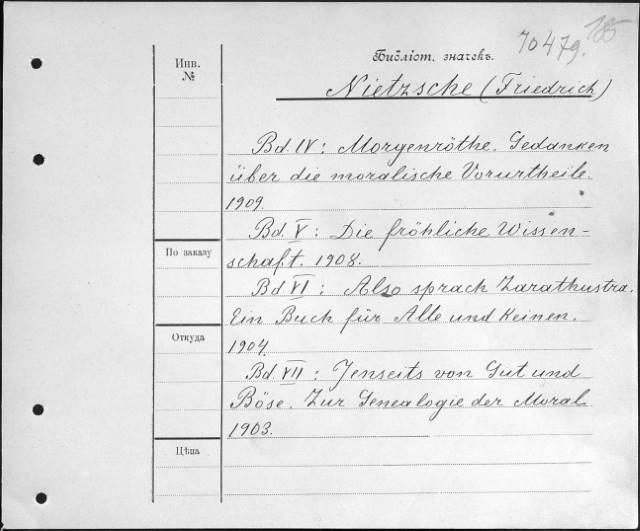 185
70479.
Инв.
№
Библіот. значекъ.
Nietzsche (Friedrich)
Bd. IV: Morgenröthe. Gedanken
über die moralische Vorurtheile.
1909.
Bd. V: Die fröhliche Wissen-
По заказу
schaft. 1908.
Bd VI: Also sprach Zarathustra.
Ein Buch für Alle und Keinen.
Откуда
1904.
Bd. VII: Jenseits von Gut und
Böse. Zur Genealogie der Moral.
1903.
Цѣна